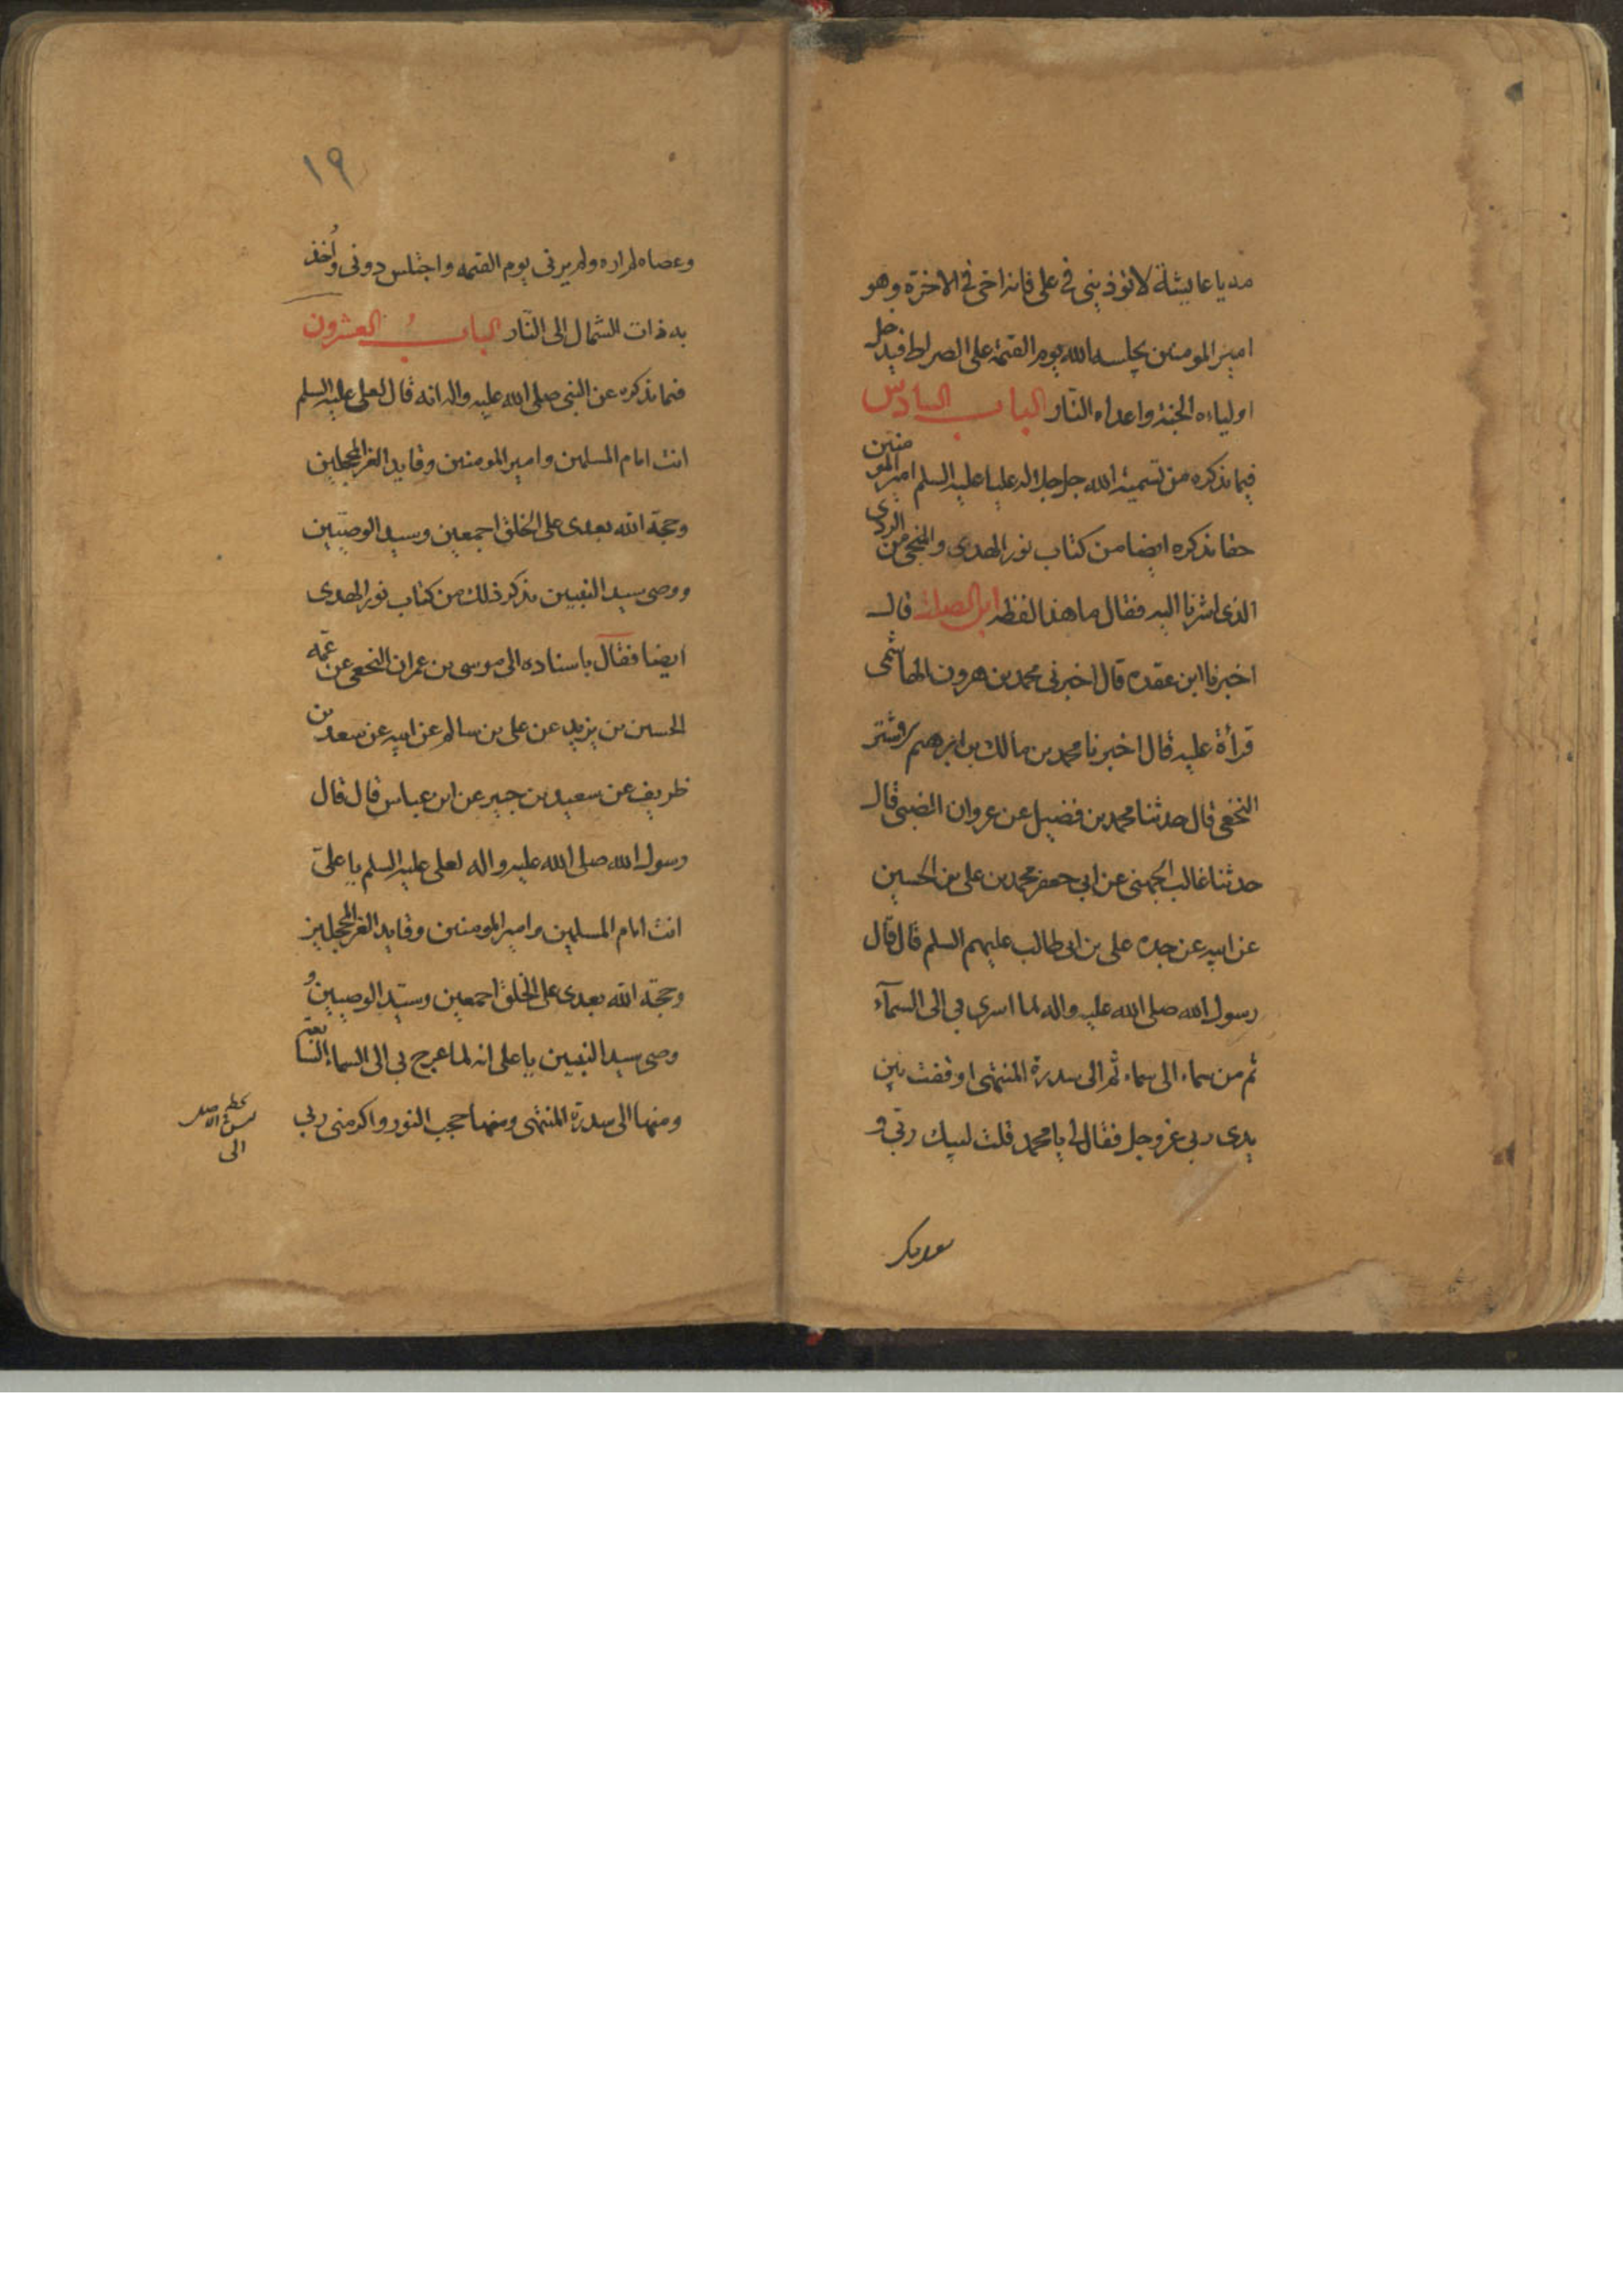 مه يا عايشة لا توذيني في علي فانه اخي في الاخرة وهو
امير المومنين يجلسه الله يوم القيمة على الصراط فيدخل
اولياءه الجنة واعداءه النّار الباب السادس
فيما نذكره من تسمية الله جل جلاله عليا عليه السلم امير المومنين
حقا نذكره ايضا من كتاب نور الهدى والمنجي من الردى
الذي اشرنا اليه فقال ما هذا لفظه ابن الصلت قال
اخبرنا ابن عقده قال اخبرني محمد بن هرون الهاشمي
قرأة عليه قال اخبرنا محمد بن مالك بن ابرهيم
النخعي قال حدثنا محمد بن فضيل عن عروان الضبي قال
حدثنا غالب الجهني عن ابي جعفر محمد بن علي بن الحسين
عن ابيه عن جده علي بن ابي طالب عليهم السلم قال قال
رسول الله صلى الله عليه واله لما اسري بي الى السمآء
ثم من سماء الى سماء ثم الى سدرة المنتهى اوقفت بين
يدى ربي عز وجل فقال لي يا محمد قلت لبيك ربي و
سعديك
١٩
وعصاه لم اره ولم يرني يوم القيمة واجتلس دوني واُخذ
به ذات الشمال الى النّار البابُ العشرون
فيما نذكره عن النبي صلى الله عليه واله انه قال لعلي عليه السلم
انت امام المسلمين وامير المومنين وقايد الغر المحجلين
وحجة الله بعدى على الخلق اجمعين وسيد الوصيّين
ووصي سيد النبيين نذكر ذلك من كتاب نور الهدى
ايضا فقال باسناده الى موسى بن عمران النخعي عن عمّه
الحسين بن يزيد عن علي بن سالم عن ابيه عن سعد بن
ظريف عن سعيد بن جبير عن ابن عباس قال قال
رسول الله صلى الله عليه واله لعلي عليه السلم يا عليّ
انت امام المسلمين وامير المومنين وقايد الغر المحجلين
وحجة الله بعدى على الخلق اجمعين وسيّد الوصيين و
وصي سيد النبيين يا علي انه لما عرج بي الى السماء السابعة
ومنها الى سدرة المنتهى ومنها حجب النور واكرمني ربي
الى